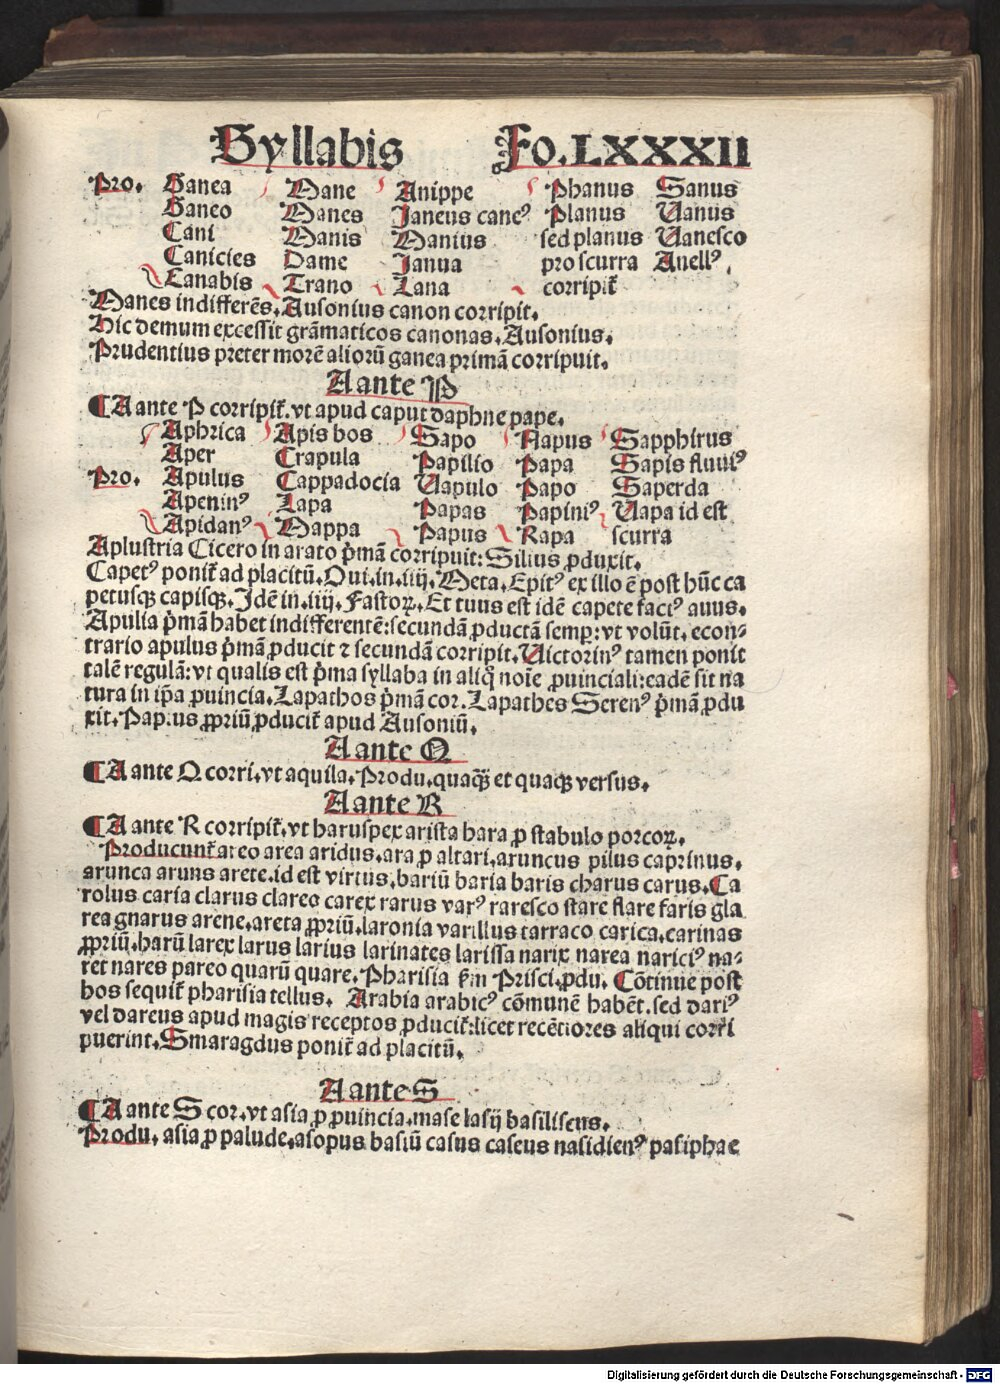 Syllabis Fo.LXXXII
Pro. Ganea Mane Anippe Phanus Sanus
Ganeo Manes Janeus caneꝰ Planus Vanus
Cani Manis Manius sed planus Vanesco
Canicies Dame Janua pro scurra Anellꝰ,
Canabis Trano Lana corripit̄
Manes indifferēs. Ausonius canon corripit.
Hic demum excessit grāmaticos canonas. Ausonius.
Prudentius preter morē aliorū ganea primā corripuit.
A ante P
¶A ante P corripit̄. vt apud caput daphne pape.
Aphrica Apis bos Sapo Napus Sapphirus
Aper Crapula Papilio Papa Sapis fluuiꝰ
Pro. Apulus Cappadocia Vapulo Papo Saperda
Apeninꝰ Lapa Papas Papiniꝰ Vapa id est
Apidanꝰ Mappa Papus Rapa scurra
Aplustria Cicero in arato p̄mā corripuit: Silius ꝓduxit.
Capetꝰ ponit̄ ad placitū. Oui. in. iiij. Meta. Epitꝰ ex illo ē post hūc ca
petusqꝫ capisqꝫ. Jdē in. iiij. Fastoꝝ. Et tuus est idē capete faciꝰ auus.
Apulia p̄mā habet indifferentē: secundā ꝓductā semꝑ: vt volūt. econ-
trario apulus p̄mā ꝓducit ⁊ secundā corripit. Victorinꝰ tamen ponit
talē regulā: vt qualis est p̄ma syllaba in aliq̄ noīe ꝓuinciali: eadē sit na
tura in ip̄a ꝓuincia. Lapathos p̄mā cor. Lapathes Serenꝰ p̄mā ꝓdu
xit. Papius ꝓpriū ꝓducit̄ apud Ausoniū.
A ante Q
¶A ante Q corri. vt aquila. Produ. quaqꝫ et quaqꝫ versus.
A ante R
¶A ante R corripit̄. vt haruspex arista hara ꝓ stabulo porcoꝝ.
Producunt̄ areo area aridus. ara ꝓ altari. aruncus pilus caprinus.
arunca aruns arete. id est virtus. bariū baria baris charus carus. Ca
rolus caria clarus clareo carex rarus varꝰ raresco stare flare faris gla
rea gnarus arene. areta ꝓpriū. laronia varillus tarraco carica. carinas
ꝓpriū. harū larex larus larius larinates larissa narix narea nariciꝰ na-
ret nares pareo quarū quare. Pharisia fm̄ Prisci. ꝓdu. Cōtinue post
hos sequit̄ pharisia tellus. Arabia arabicꝰ cōmunē habēt. sed dariꝰ
vel dareus apud magis receptos ꝓducit̄: licet recētiores aliqui corri
puerint. Smaragdus ponit̄ ad placitū.
A ante S
¶A ante S cor. vt asia ꝓ ꝓuincia. mase lasij basiliscus.
Produ. asia ꝓ palude. asopus basiū casus caseus nasidienꝰ pasiphae
Digitalisierung gefördert durch die Deutsche Forschungsgemeinschaft - DFG